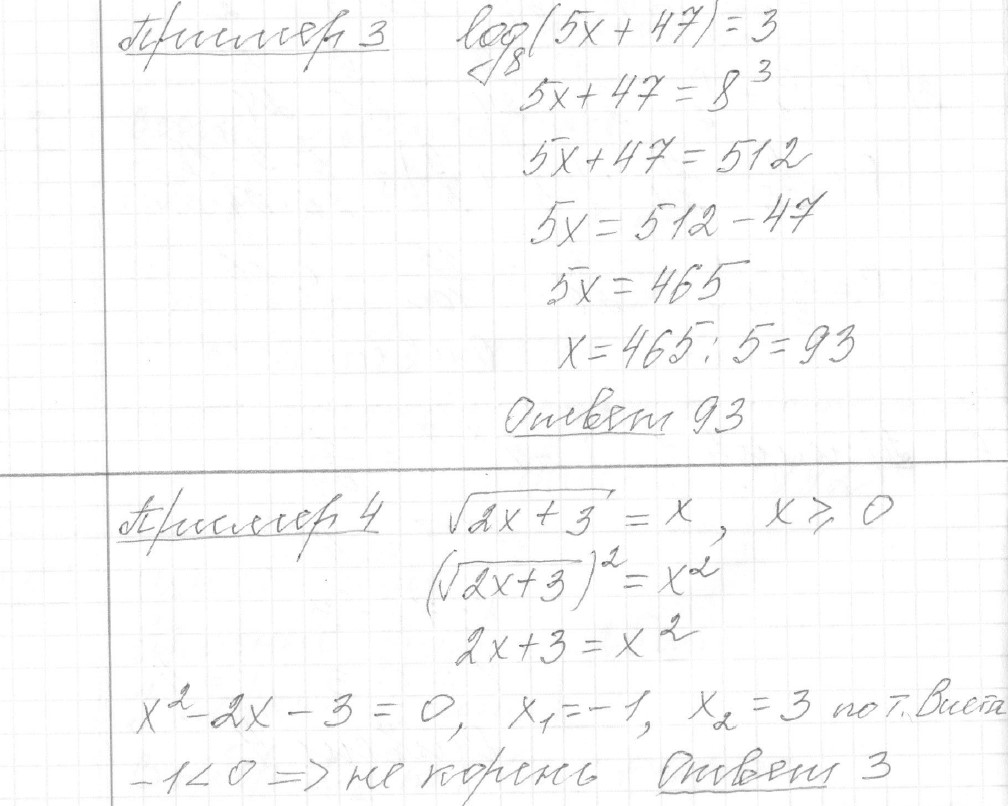 Пример 3 log₈(5x + 47) = 3
5x + 47 = 8³
5x + 47 = 512
5x = 512 - 47
5x = 465
x = 465 : 5 = 93
Ответ 93
Пример 4 √(2x + 3) = x, x ≥ 0
(√(2x + 3))² = x²
2x + 3 = x²
x² - 2x - 3 = 0, x₁ = -1, x₂ = 3 по т. Виета
-1 < 0 => не корень Ответ 3